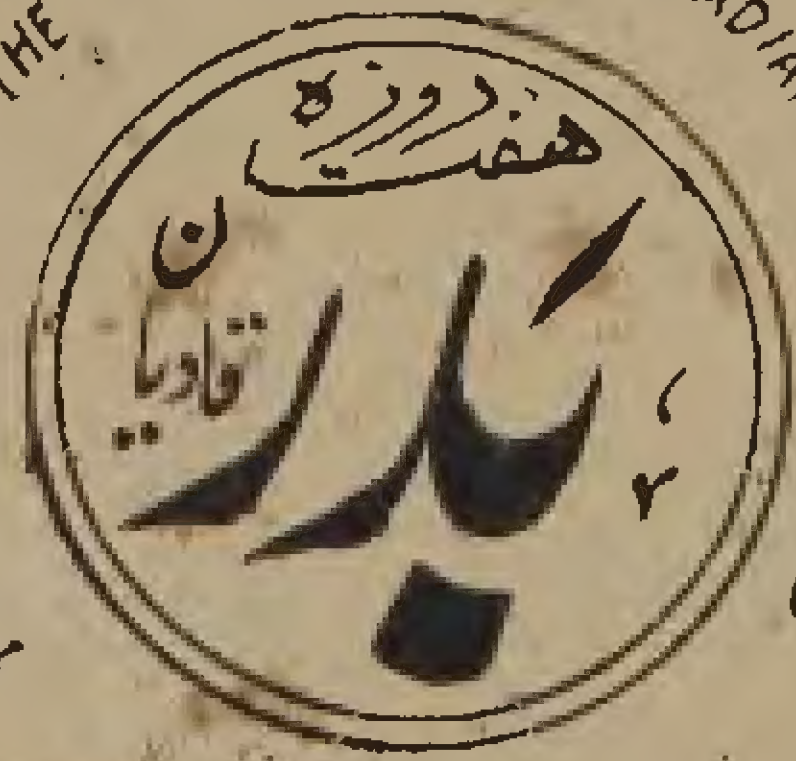 THE
ہفت روزہ
بَدر
قادیان